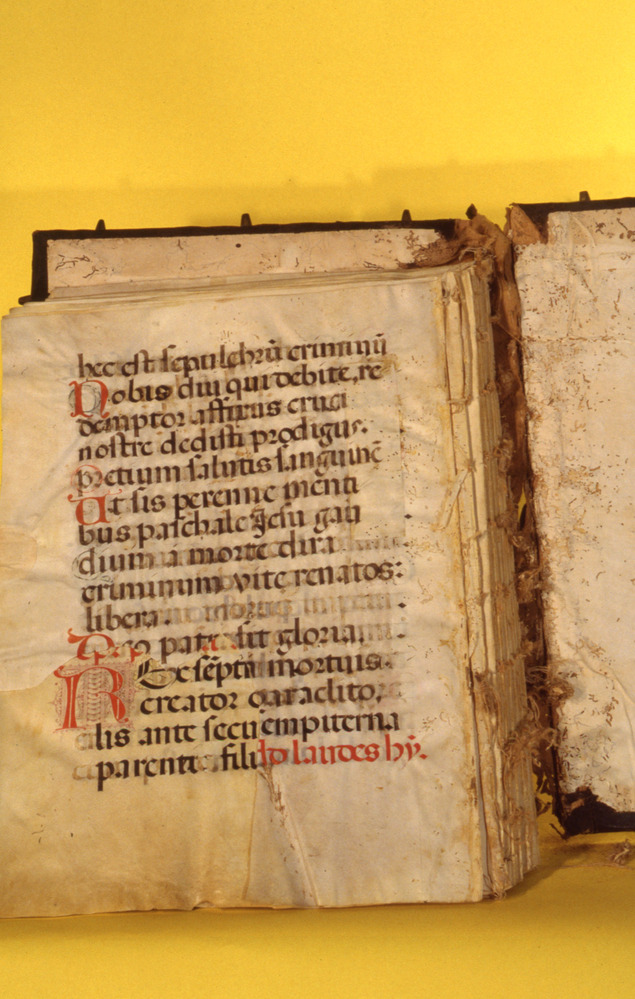 hec est sepulchrū criminū
Nobis diu qui debite, re
demptor affixus cruci
nostre dedisti prodigus.
pretium salutis sanguinē
Ut sis perenne menti
bus paschale Jesu gau
dium a morte dira
criminum vite renatos:
libera.
Deo patri sit gloria,
mortuis.
Rex creator
alis ante secu
parente fili laudes hȳ.